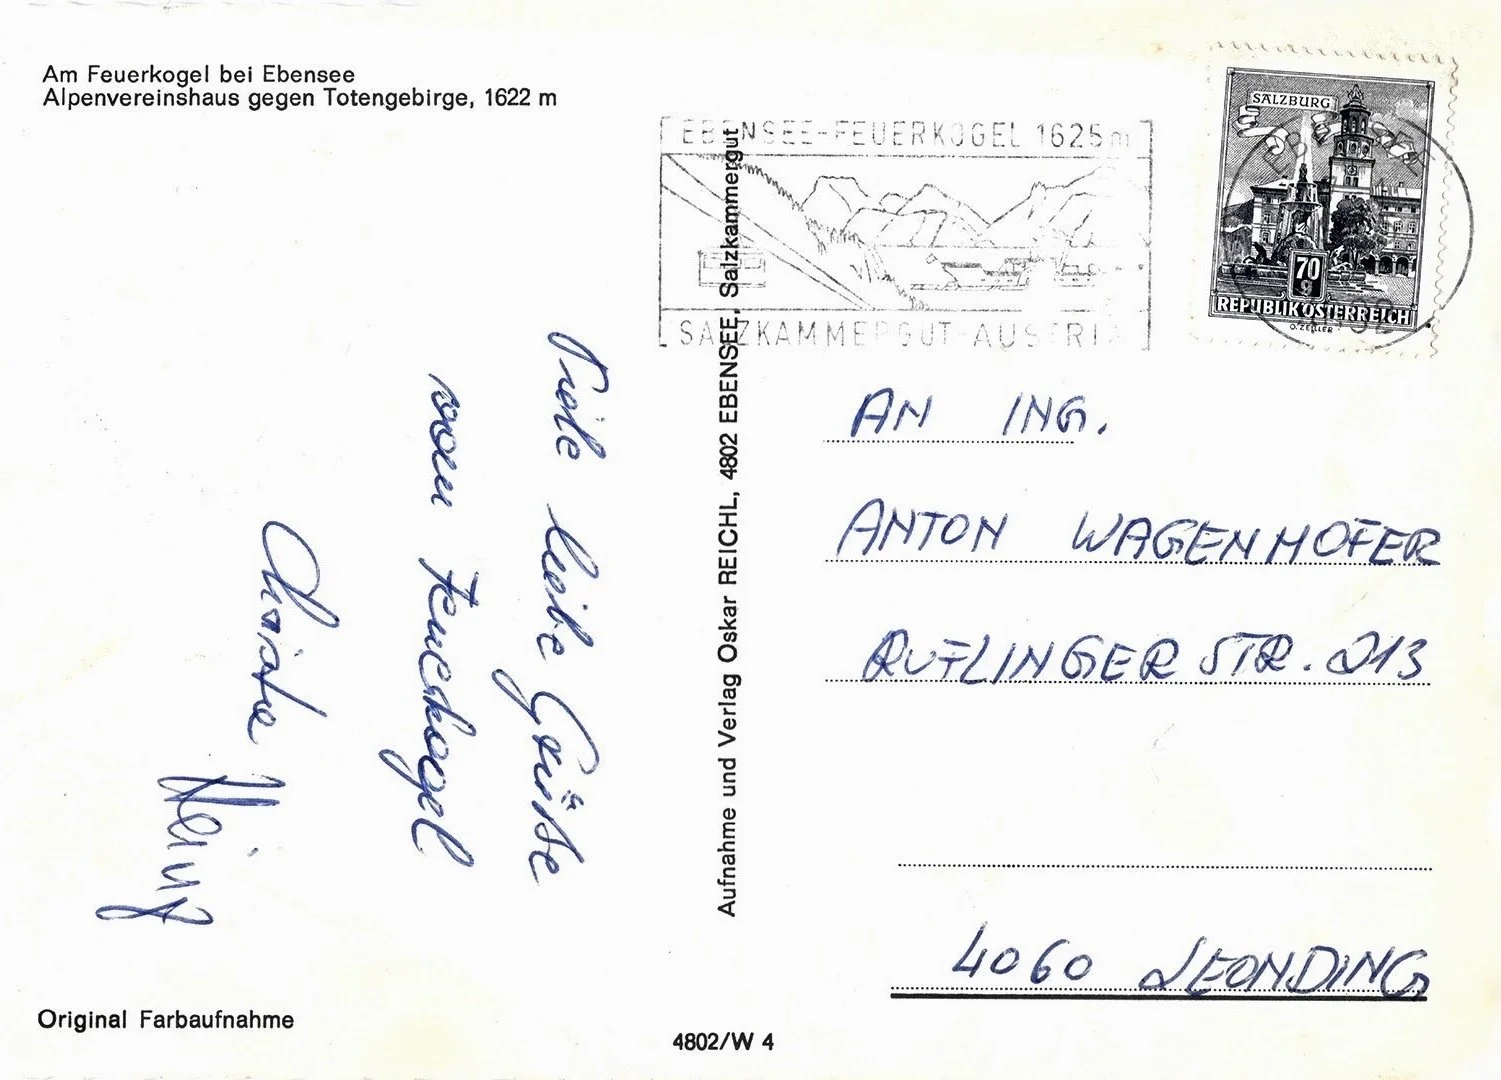 Am Feuerkogel bei Ebensee
Alpenvereinshaus gegen Totengebirge, 1622 m
EBENSEE-FEUERKOGEL 1625m
SALZKAMMERGUT-AUSTRIA
SALZBURG
EBENSEE
4802
70
g
REPUBLIK ÖSTERREICH
O. ZEILER
Viele liebe Grüße
vom Feuerkogel
Christa
Heinz
Aufnahme und Verlag Oskar REICHL, 4802 EBENSEE, Salzkammergut
AN ING.
ANTON WAGENHOFER
RUFLINGER STR. 213
4060 LEONDING
Original Farbaufnahme
4802/W 4